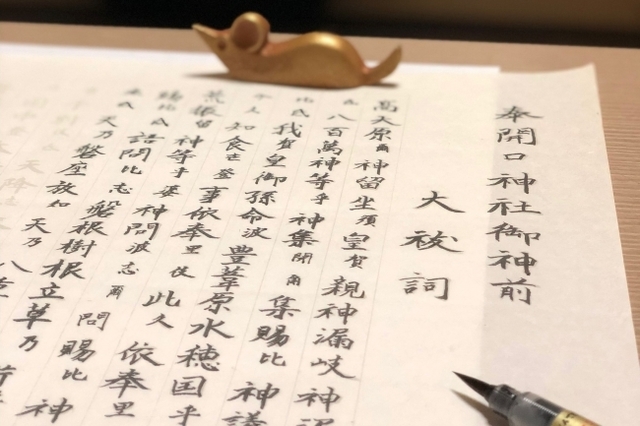 奉開口神社御神前
大祓詞
高天原爾神留坐須皇賀親神漏岐神
氐八百萬神等乎神集閇爾集賜比神議
氐我賀皇御孫命波豊葦原水穂国乎
知食世登事依奉里伎此久依奉里
荒振留神等乎婆神問波志爾問賜比神
賜比語問比志磐根樹根立草乃
氐天乃磐座放知天乃八重